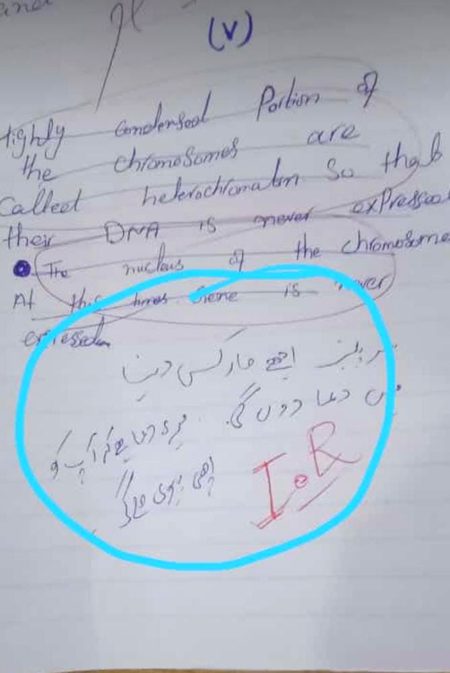 (V)
tightly condensed Portion of
the chromosomes are
called heterochromatin So that
their DNA is never expressed
The nucleus of the chromosome
At this times Gene is never
expressed
سر پلیز اچھے مارکس دینا
میں دعا دوں گی۔ میری دعا ہے کہ آپ کو
اچھی بیوی ملے
I.R